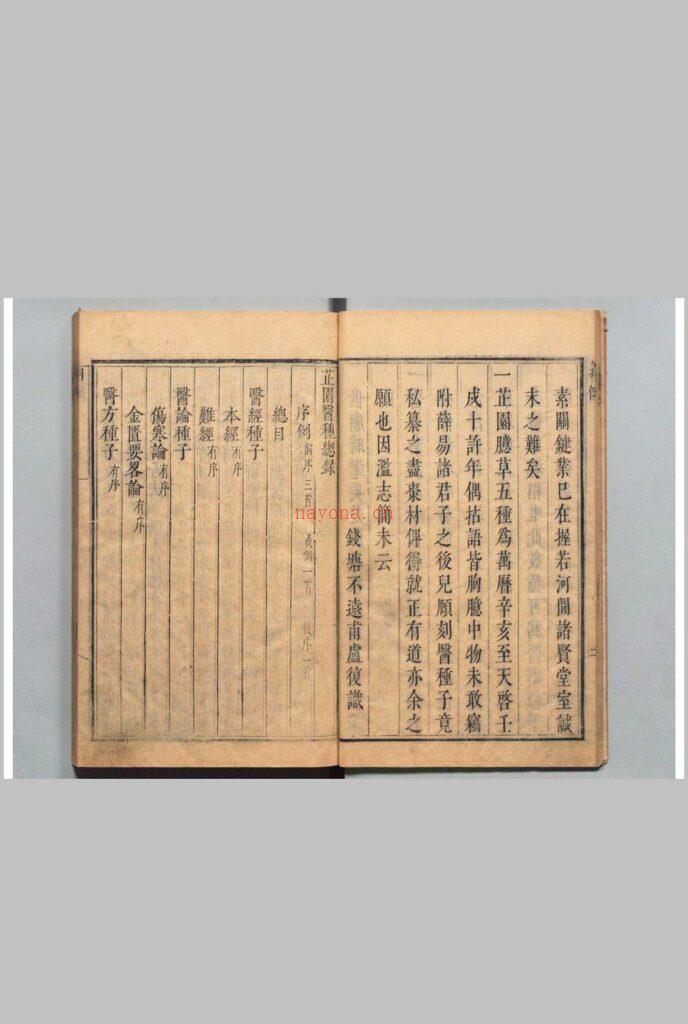 素關鍵業已在握若河間諸賢堂室誠
未之難矣
一芷園臆草五種爲萬曆辛亥至天啓壬
戌十許年偶拈語皆胸臆中物未敢竊
附薛易諸君子之後兒願刻醫種子竟
私纂之盡棗材倂得就正有道亦余之
願也因濫志簡末云
錢塘不遠甫盧復識
芷園醫種總錄
序例 前序三首 義例一首 後序一首
總目
醫經種子
本經 有序
難經 有序
醫論種子
傷寒論 有序
金匱要畧論 有序
醫方種子 有序
nayona.cn